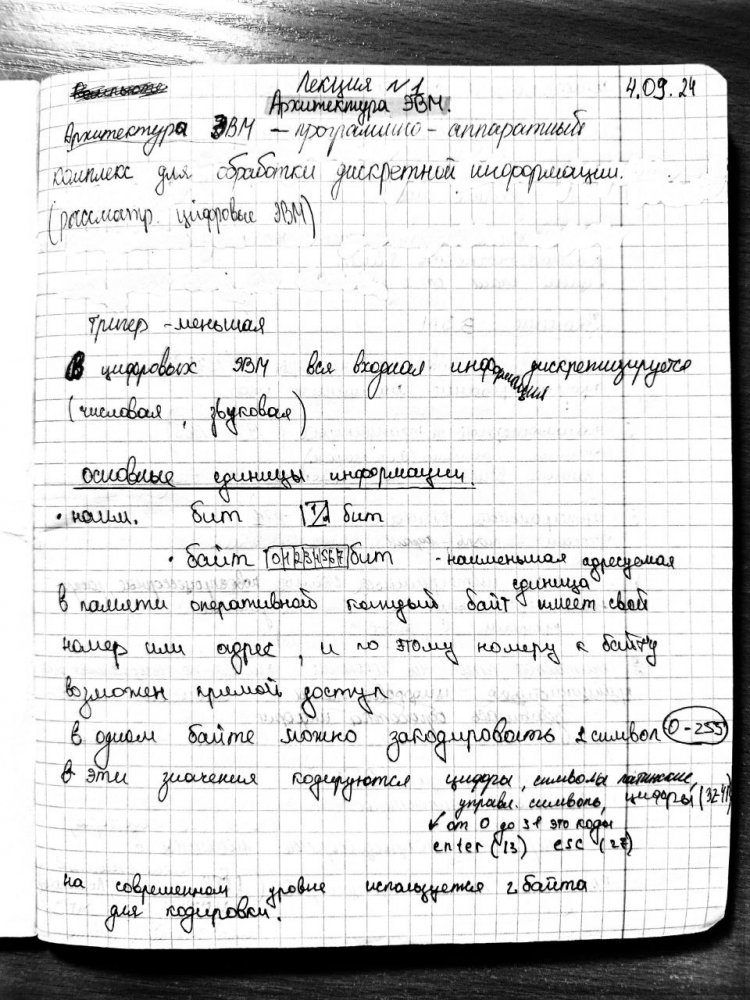 Лекция №1 4.09.24
Архитектура ЭВМ.
Архитектура ЭВМ — программно - аппаратный
комплекс для обработки дискретной информации.
(рассматр. цифровые ЭВМ)
Тригер - меньшая
В цифровых ЭВМ вся входная информация дискретизируется
(числовая, звуковая)
основные единицы информации.
• наим. бит бит
• байт 01234567 бит - наименьшая адресуемая
единица
в памяти оперативной каждый байт имеет свой
номер или адрес, и по этому номеру к байту
возможен прямой доступ
в одном байте можно закодировать 1 символ 0-255
в эти значения кодируются цифры, символы латинские,
управл. символы, цифры (32-47)
↙ от 0 до 31 это коды
enter (13) esc (27)
на современном уровне используется 2 байта
для кодировки.